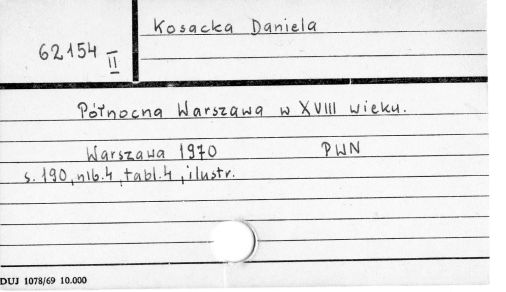 Kosacka Daniela
62154 II
Północna Warszawa w XVIII wieku.
Warszawa 1970 PWN
s. 190, nlb. 4, tabl. 4, ilustr.
DUJ 1078/69 10.000